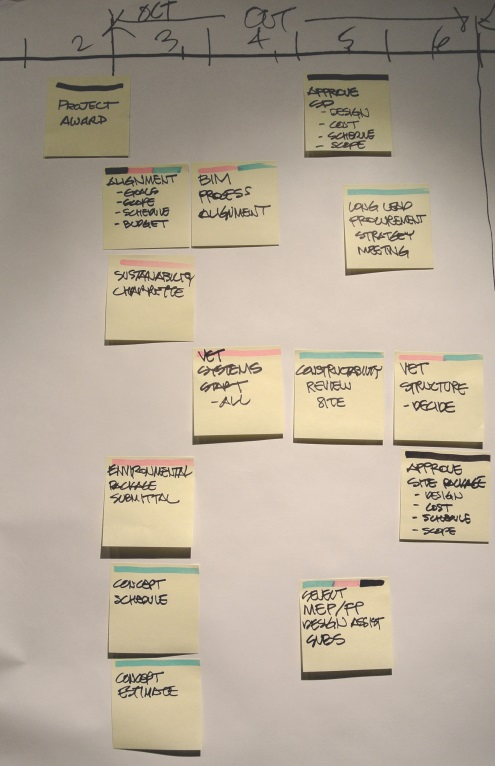 OCT OCT
2 3 4 5 6
PROJECT
AWARD
APPROVE
SD
- DESIGN
- COST
- SCHEDULE
- SCOPE
ALIGNMENT
- GOALS
- SCOPE
- SCHEDULE
- BUDGET
BIM
PROCESS
ALIGNMENT
LONG LEAD
PROCUREMENT
STRATEGY
MEETING
SUSTAINABILITY
CHARRETTE
VET
SYSTEMS
START
- ALL
CONSTRUCTABILITY
REVIEW
SITE
VET
STRUCTURE
- DECIDE
ENVIRONMENTAL
PACKAGE
SUBMITTAL
APPROVE
SITE PACKAGE
- DESIGN
- COST
- SCHEDULE
- SCOPE
CONCEPT
SCHEDULE
SELECT
MEP/FP
DESIGN ASSIST
SUBS
CONCEPT
ESTIMATE